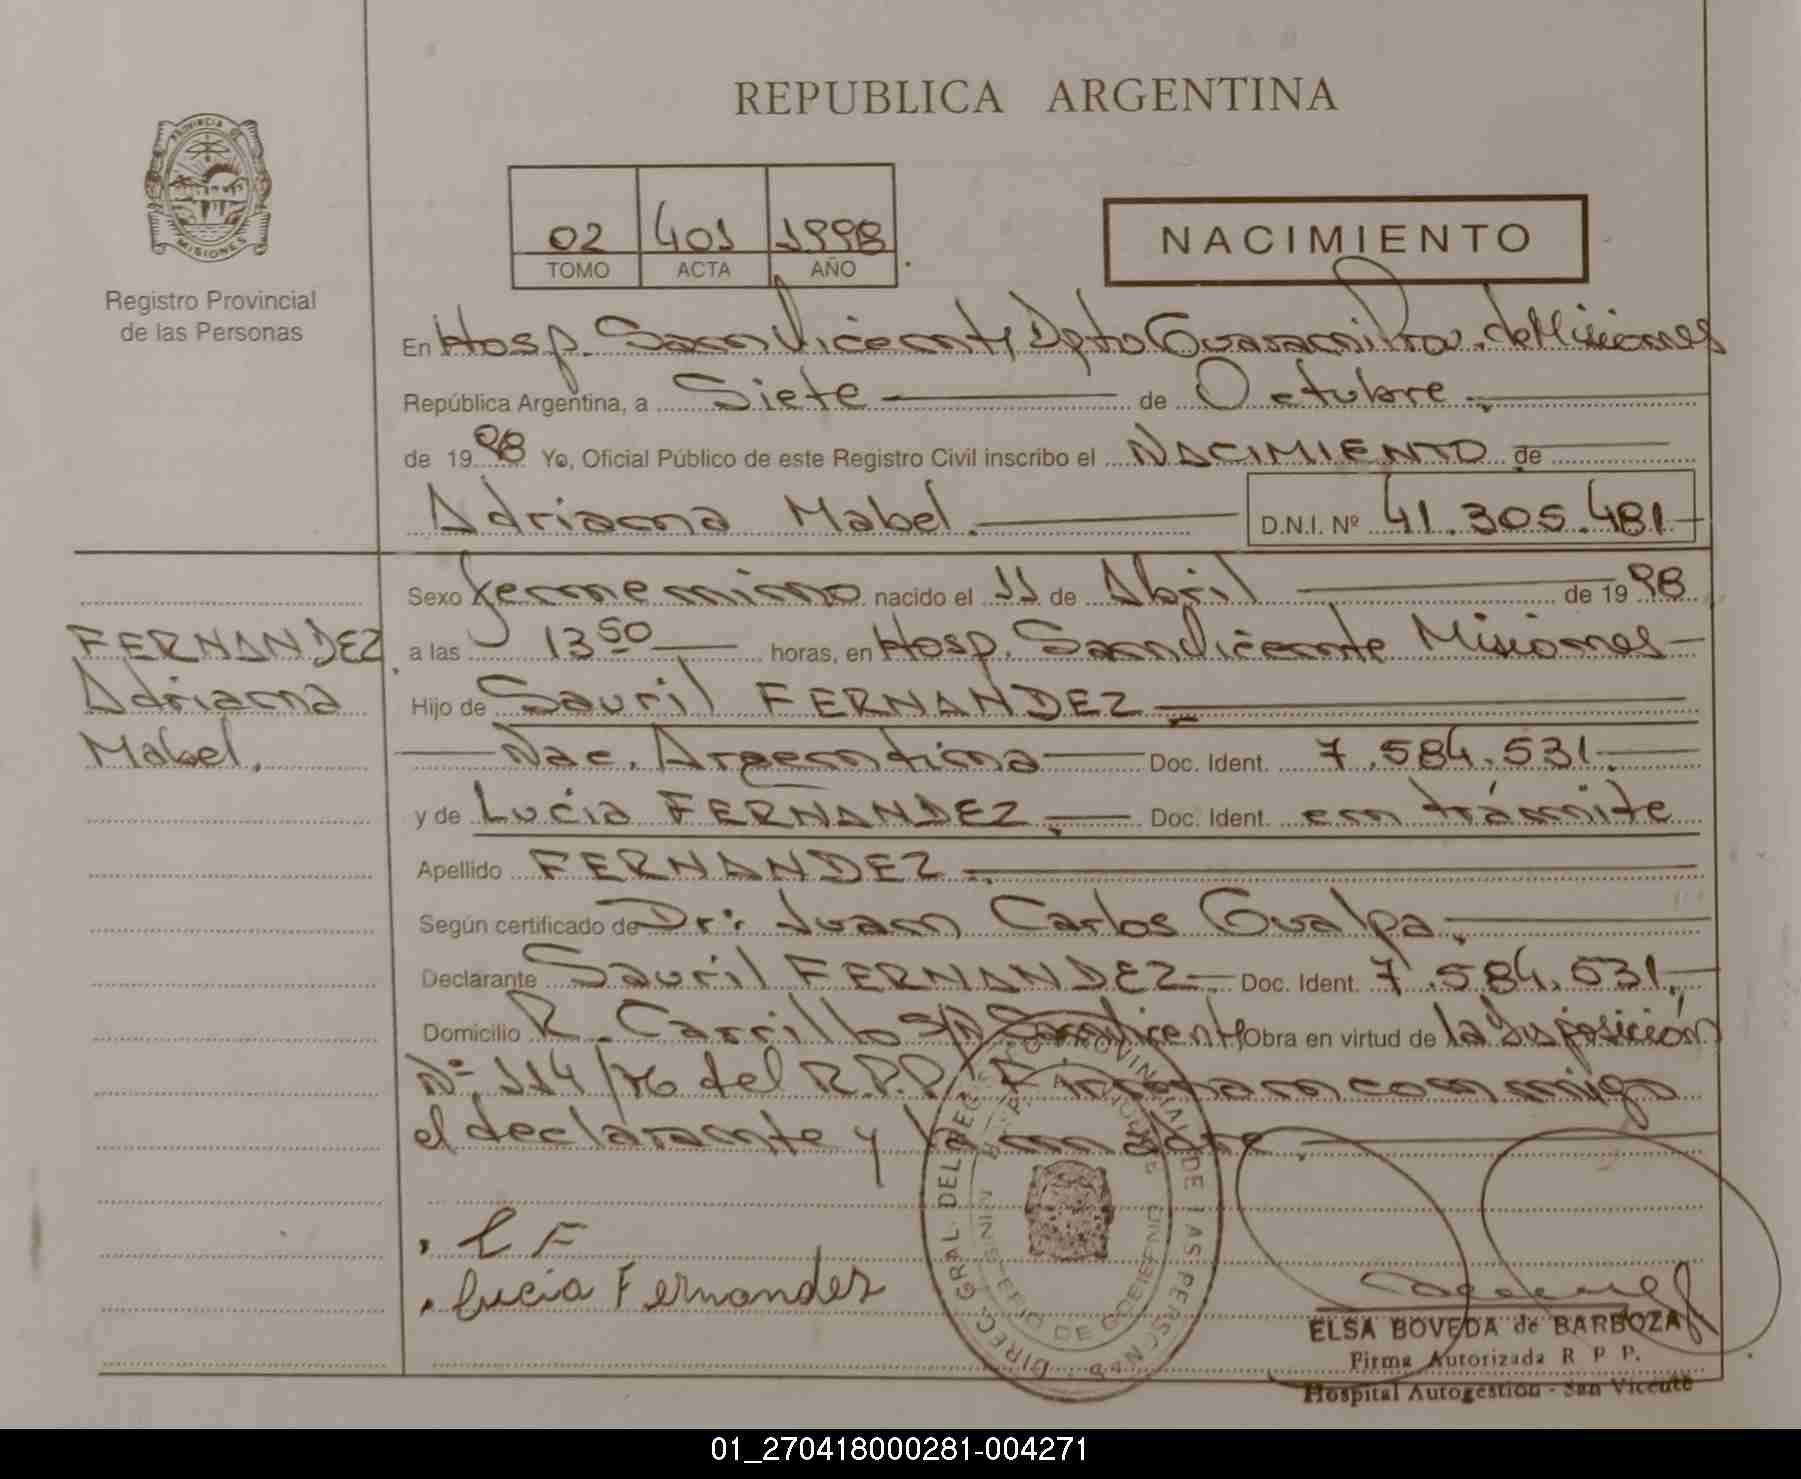 REPUBLICA ARGENTINA
PROVINCIA DE
MISIONES
Registro Provincial
de las Personas
02 401 1998
TOMO ACTA AÑO
NACIMIENTO
En Hosp. San Vicente, Dpto Guaraní Prov. de Misiones
República Argentina, a Siete de Octubre
de 1998 Yo, Oficial Público de este Registro Civil inscribo el NACIMIENTO de
Adriana Mabel. D.N.I. Nº 41.305.481
Sexo femenino nacido el 11 de Abril de 1998
FERNANDEZ
Adriana
Mabel.
a las 13 50 horas, en Hosp. San Vicente Misiones
Hijo de Sauril FERNANDEZ
Nac. Argentina Doc. Ident. 7.584.531.
y de Lucia FERNANDEZ. Doc. Ident. en trámite
Apellido FERNANDEZ.
Según certificado de Dr: Juan Carlos Gualpa.
Declarante Sauril FERNANDEZ Doc. Ident. 7.584.531.
Domicilio R. Carrillo S/N San Vicente, Obra en virtud de la Disposición
Nº 114/76 del R.P.P. Firman conmigo
el declarante y la madre.
L F
Lucia Fernandez
DIREC. GRAL. DEL REGISTRO PROVINCIAL DE LAS PERSONAS
MINISTERIO DE GOBIERNO
ELSA BOVEDA de BARBOZA
Firma Autorizada R P P.
Hospital Autogestion - San Vicente
01_270418000281-004271